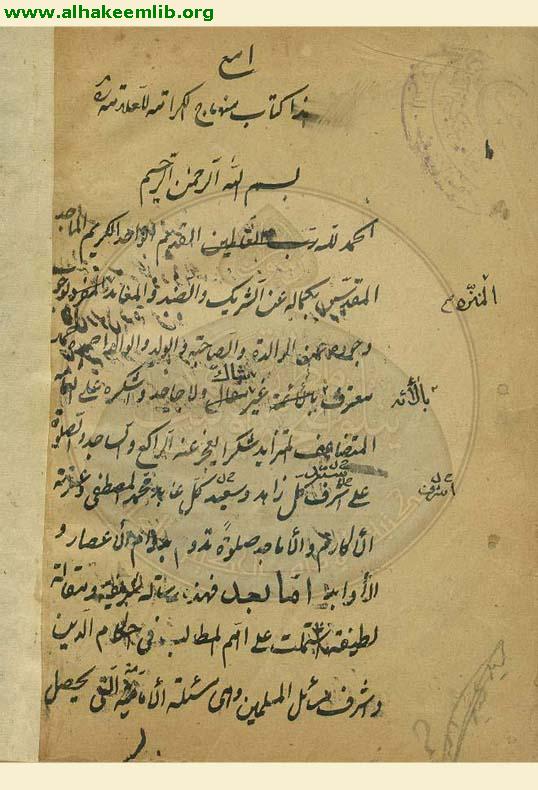 www.alhakeemlib.org
هذا كتاب منهاج الكرامه للعلامه
بسم الله الرحمن الرحيم
الحمد لله رب العالمين القديم الواحد الكريم الماجد
المقدس بكماله عن الشريك والضد والمعاند المنزه
وجوده عن الوالدة والصاحبة والولد والوالد احمده حمد
معترف بآلائه غير شاك ولا جاحد واشكره على
المتضاعف المتزايد شكرا يعجز عنه الراكع والساجد والصلوة
على اشرف كل زاهد وسعيد كل عابد محمد المصطفى وعترته
الأكارم والأماجد صلوة تدوم بدوام الأعصار و
الأوابد اما بعد فهذه رسالة شريفة ومقالة
لطيفة اشتملت على اهم المطالب في احكام الدين
واشرف مسائل المسلمين وهي مسئلة الامامة التي يحصل
المنزه
بآلائه
اشرف